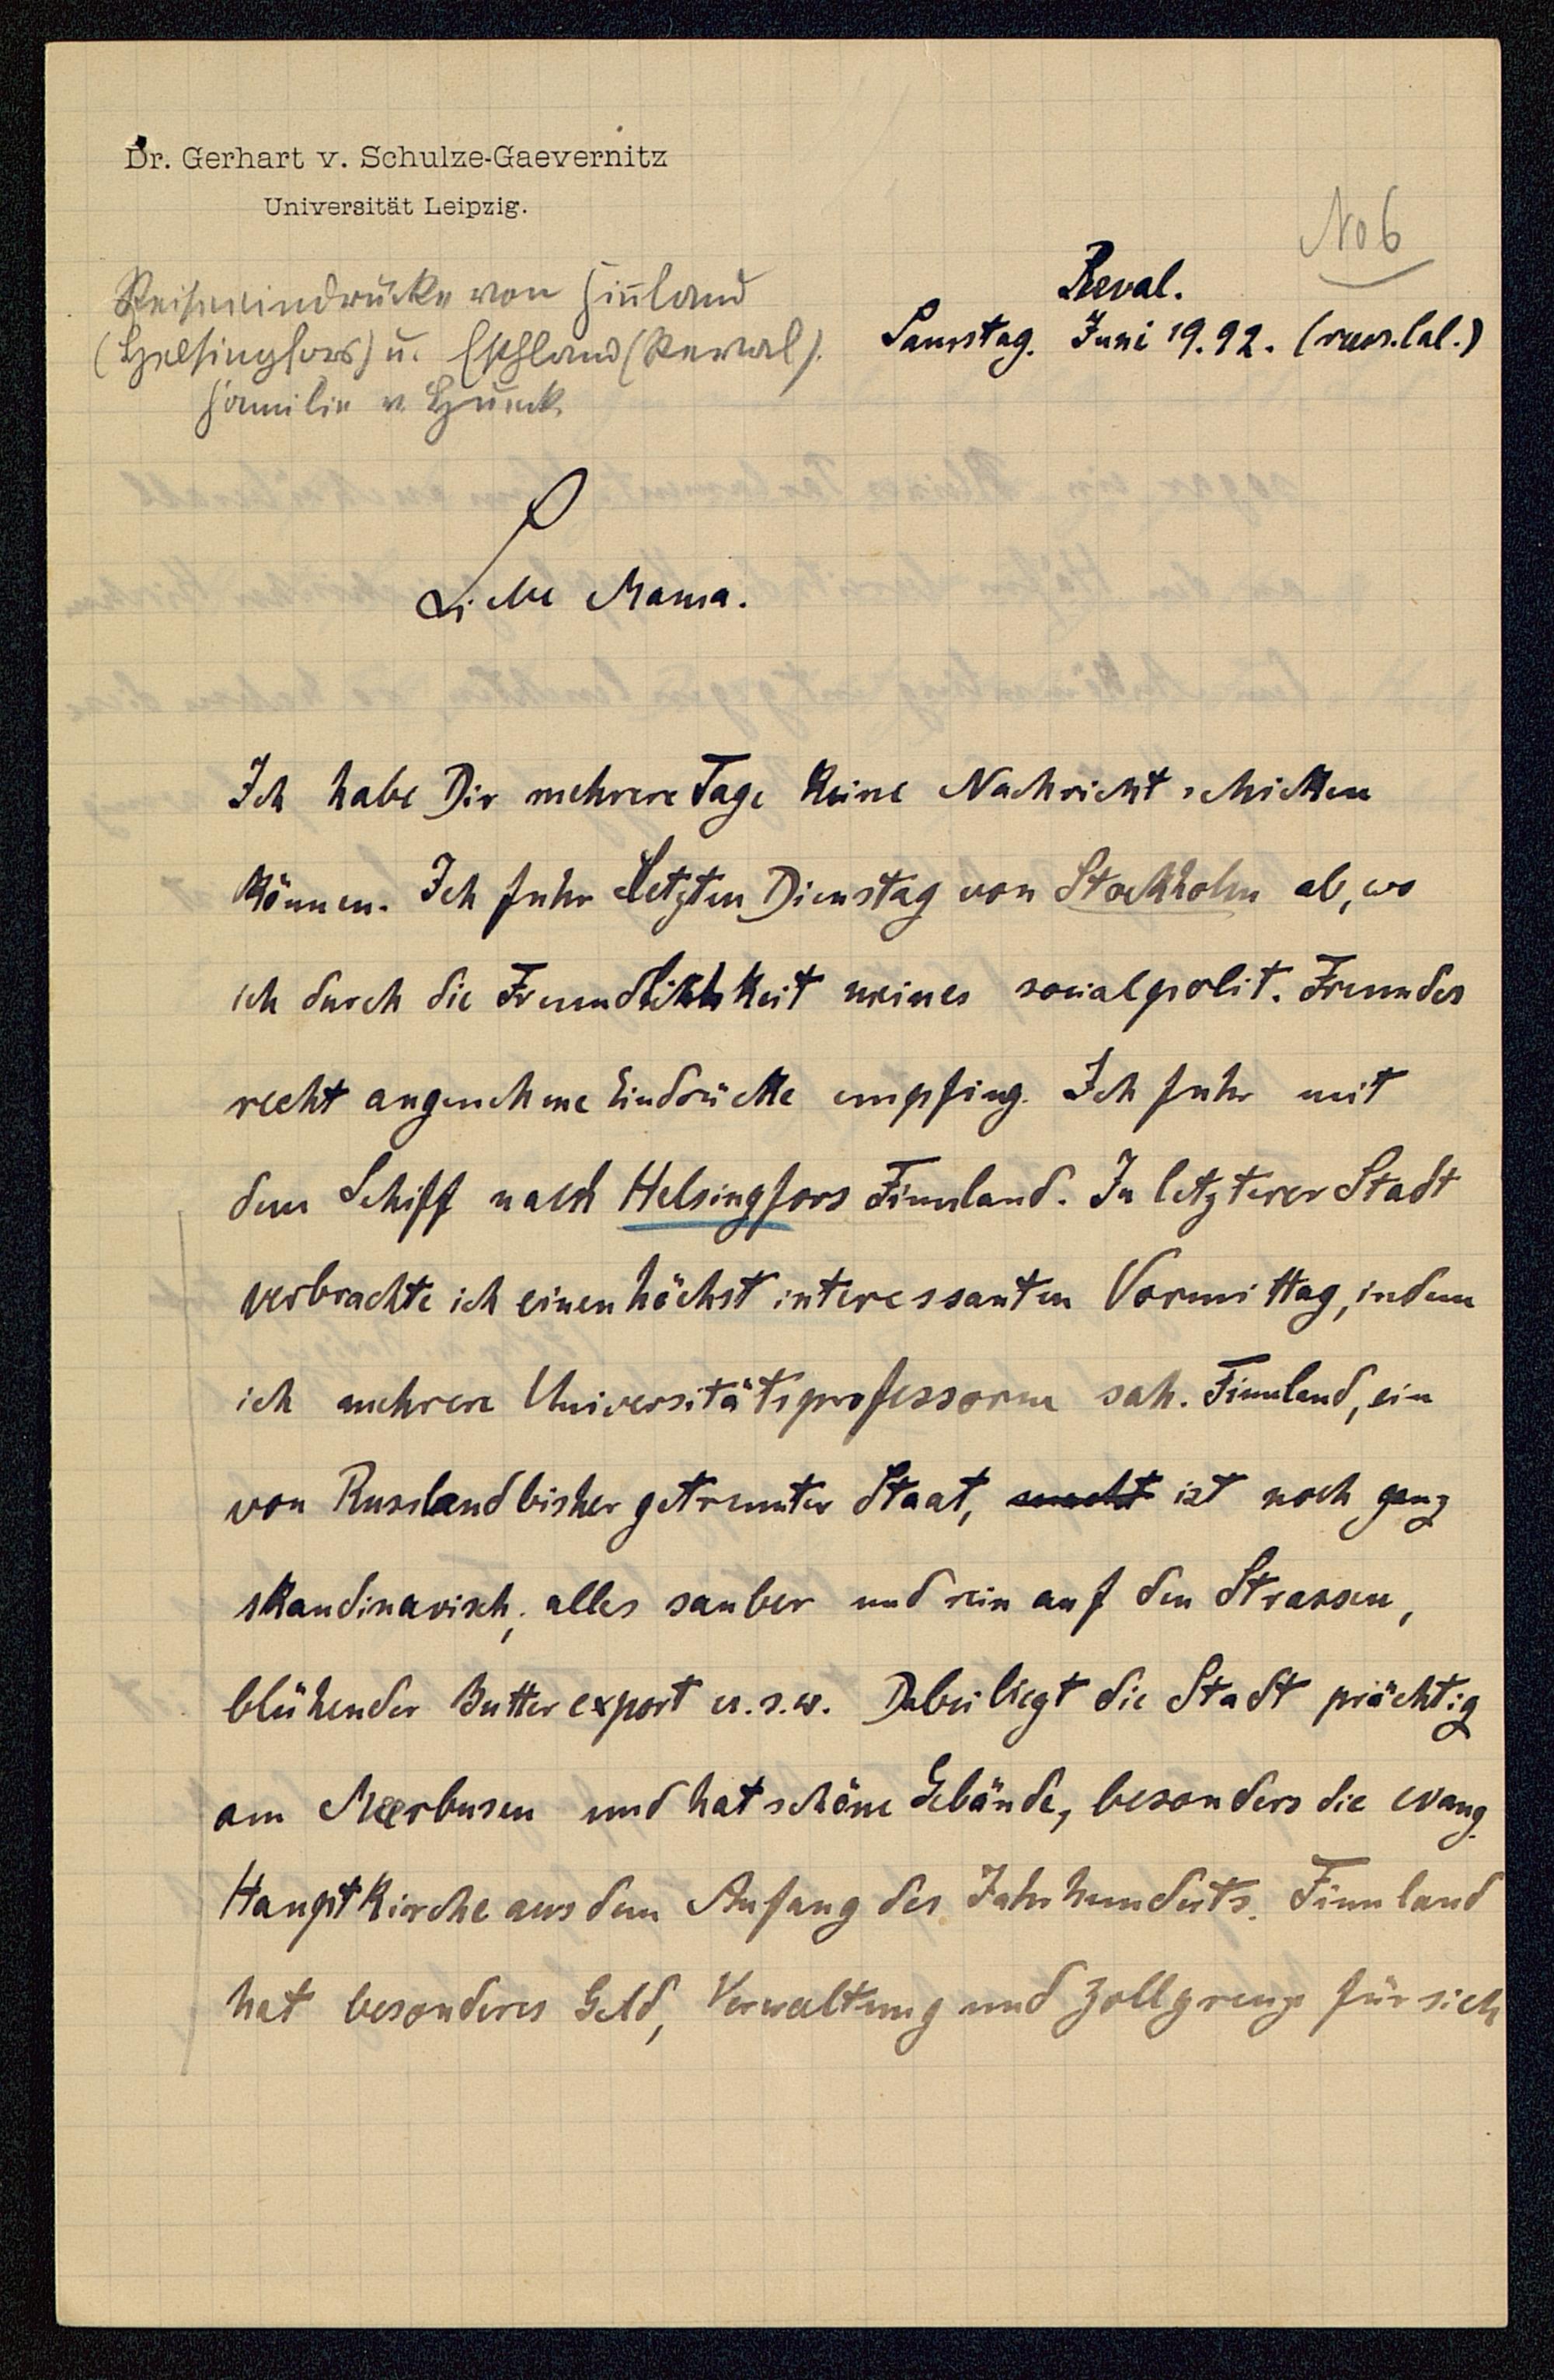 Dr. Gerhart v. Schulze-Gaevernitz
Universität Leipzig.
No 6
Reiseeindrücke von Finland
(Helsingfors) u. Esthland (Reval).
Familie v. Hueck
Reval.
Samstag. Juni 19. 92. (russ. Cal.)
Liebe Mama.
Ich habe Dir mehrere Tage keine Nachricht schicken
können. Ich fuhr letzten Dienstag von Stockholm ab, wo
ich durch die Freundlichkeit meines socialpolit. Freundes
recht angenehme Eindrücke empfing. Ich fuhr mit
dem Schiff nach Helsingfors Finnland. In letzterer Stadt
verbrachte ich einen höchst interessanten Vormittag, indem
ich mehrere Universitätsprofessoren sah. Finnland, ein
von Russland bisher getrennter Staat, macht ist noch ganz
skandinavisch, alles sauber und rein auf den Strassen,
blühender Butterexport u.s.w. Dabei liegt die Stadt prächtig
am Meerbusen und hat schöne Gebäude, besonders die evang.
Hauptkirche aus dem Anfang des Jahrhunderts. Finnland
hat besonderes Geld, Verwaltung und Zollgrenze für sich